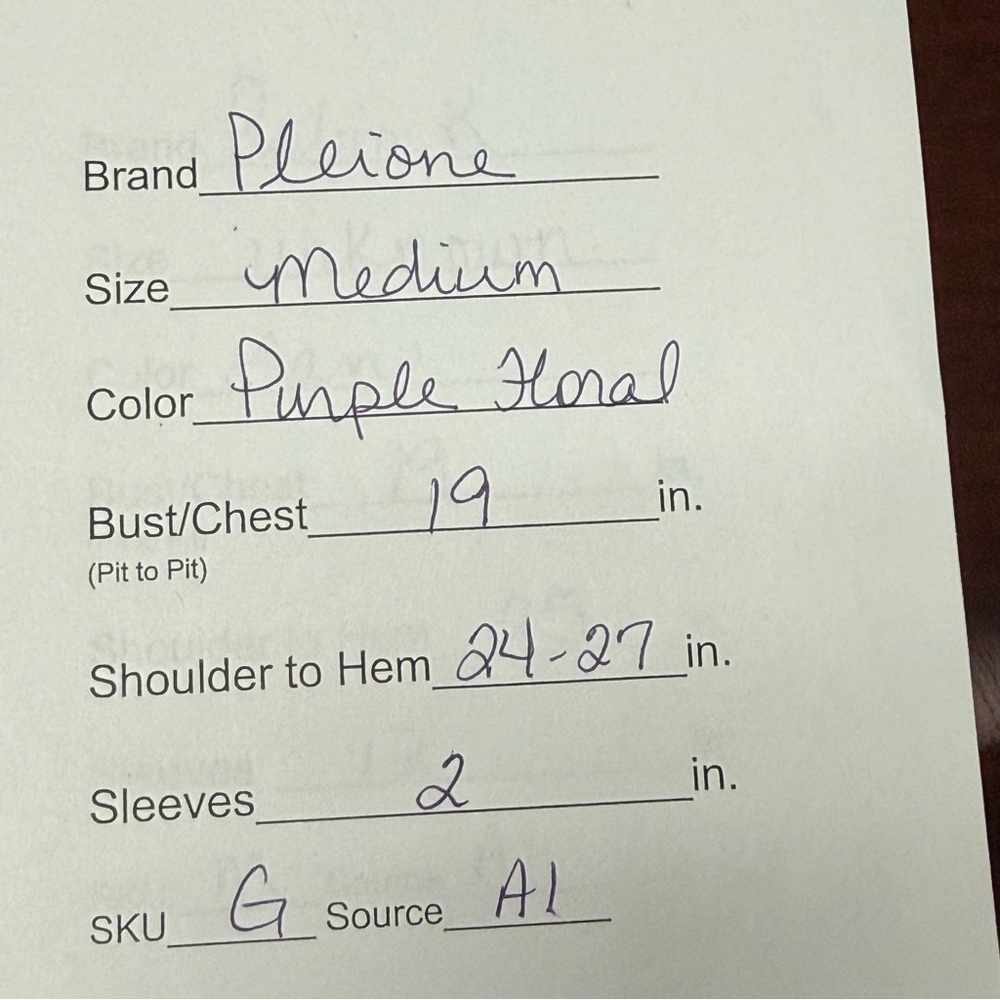 Brand Pleione
Size Medium
Color Purple Floral
Bust/Chest 19 in.
(Pit to Pit)
Shoulder to Hem 24-27 in.
Sleeves 2 in.
SKU G Source A1